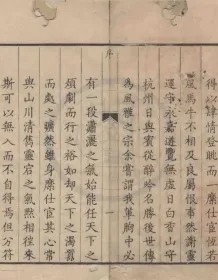 得以肆情登眺而一縻仕宦
風馬牛不相及良屬恨事然謝靈
運守永嘉遊覽無虛日白香山守
杭州日與賓從醉吟名勝後世傳
為風雅之宗余嘗謂我輩胸中必
序
一
有一段瀟灑之氣始能任天下之
煩劇而行之裕如却天下之濁
而處之曠然雖身縻仕宦其心常
與山川清雋靈宕之氣相往來
斯可以無入而不自得焉但分符